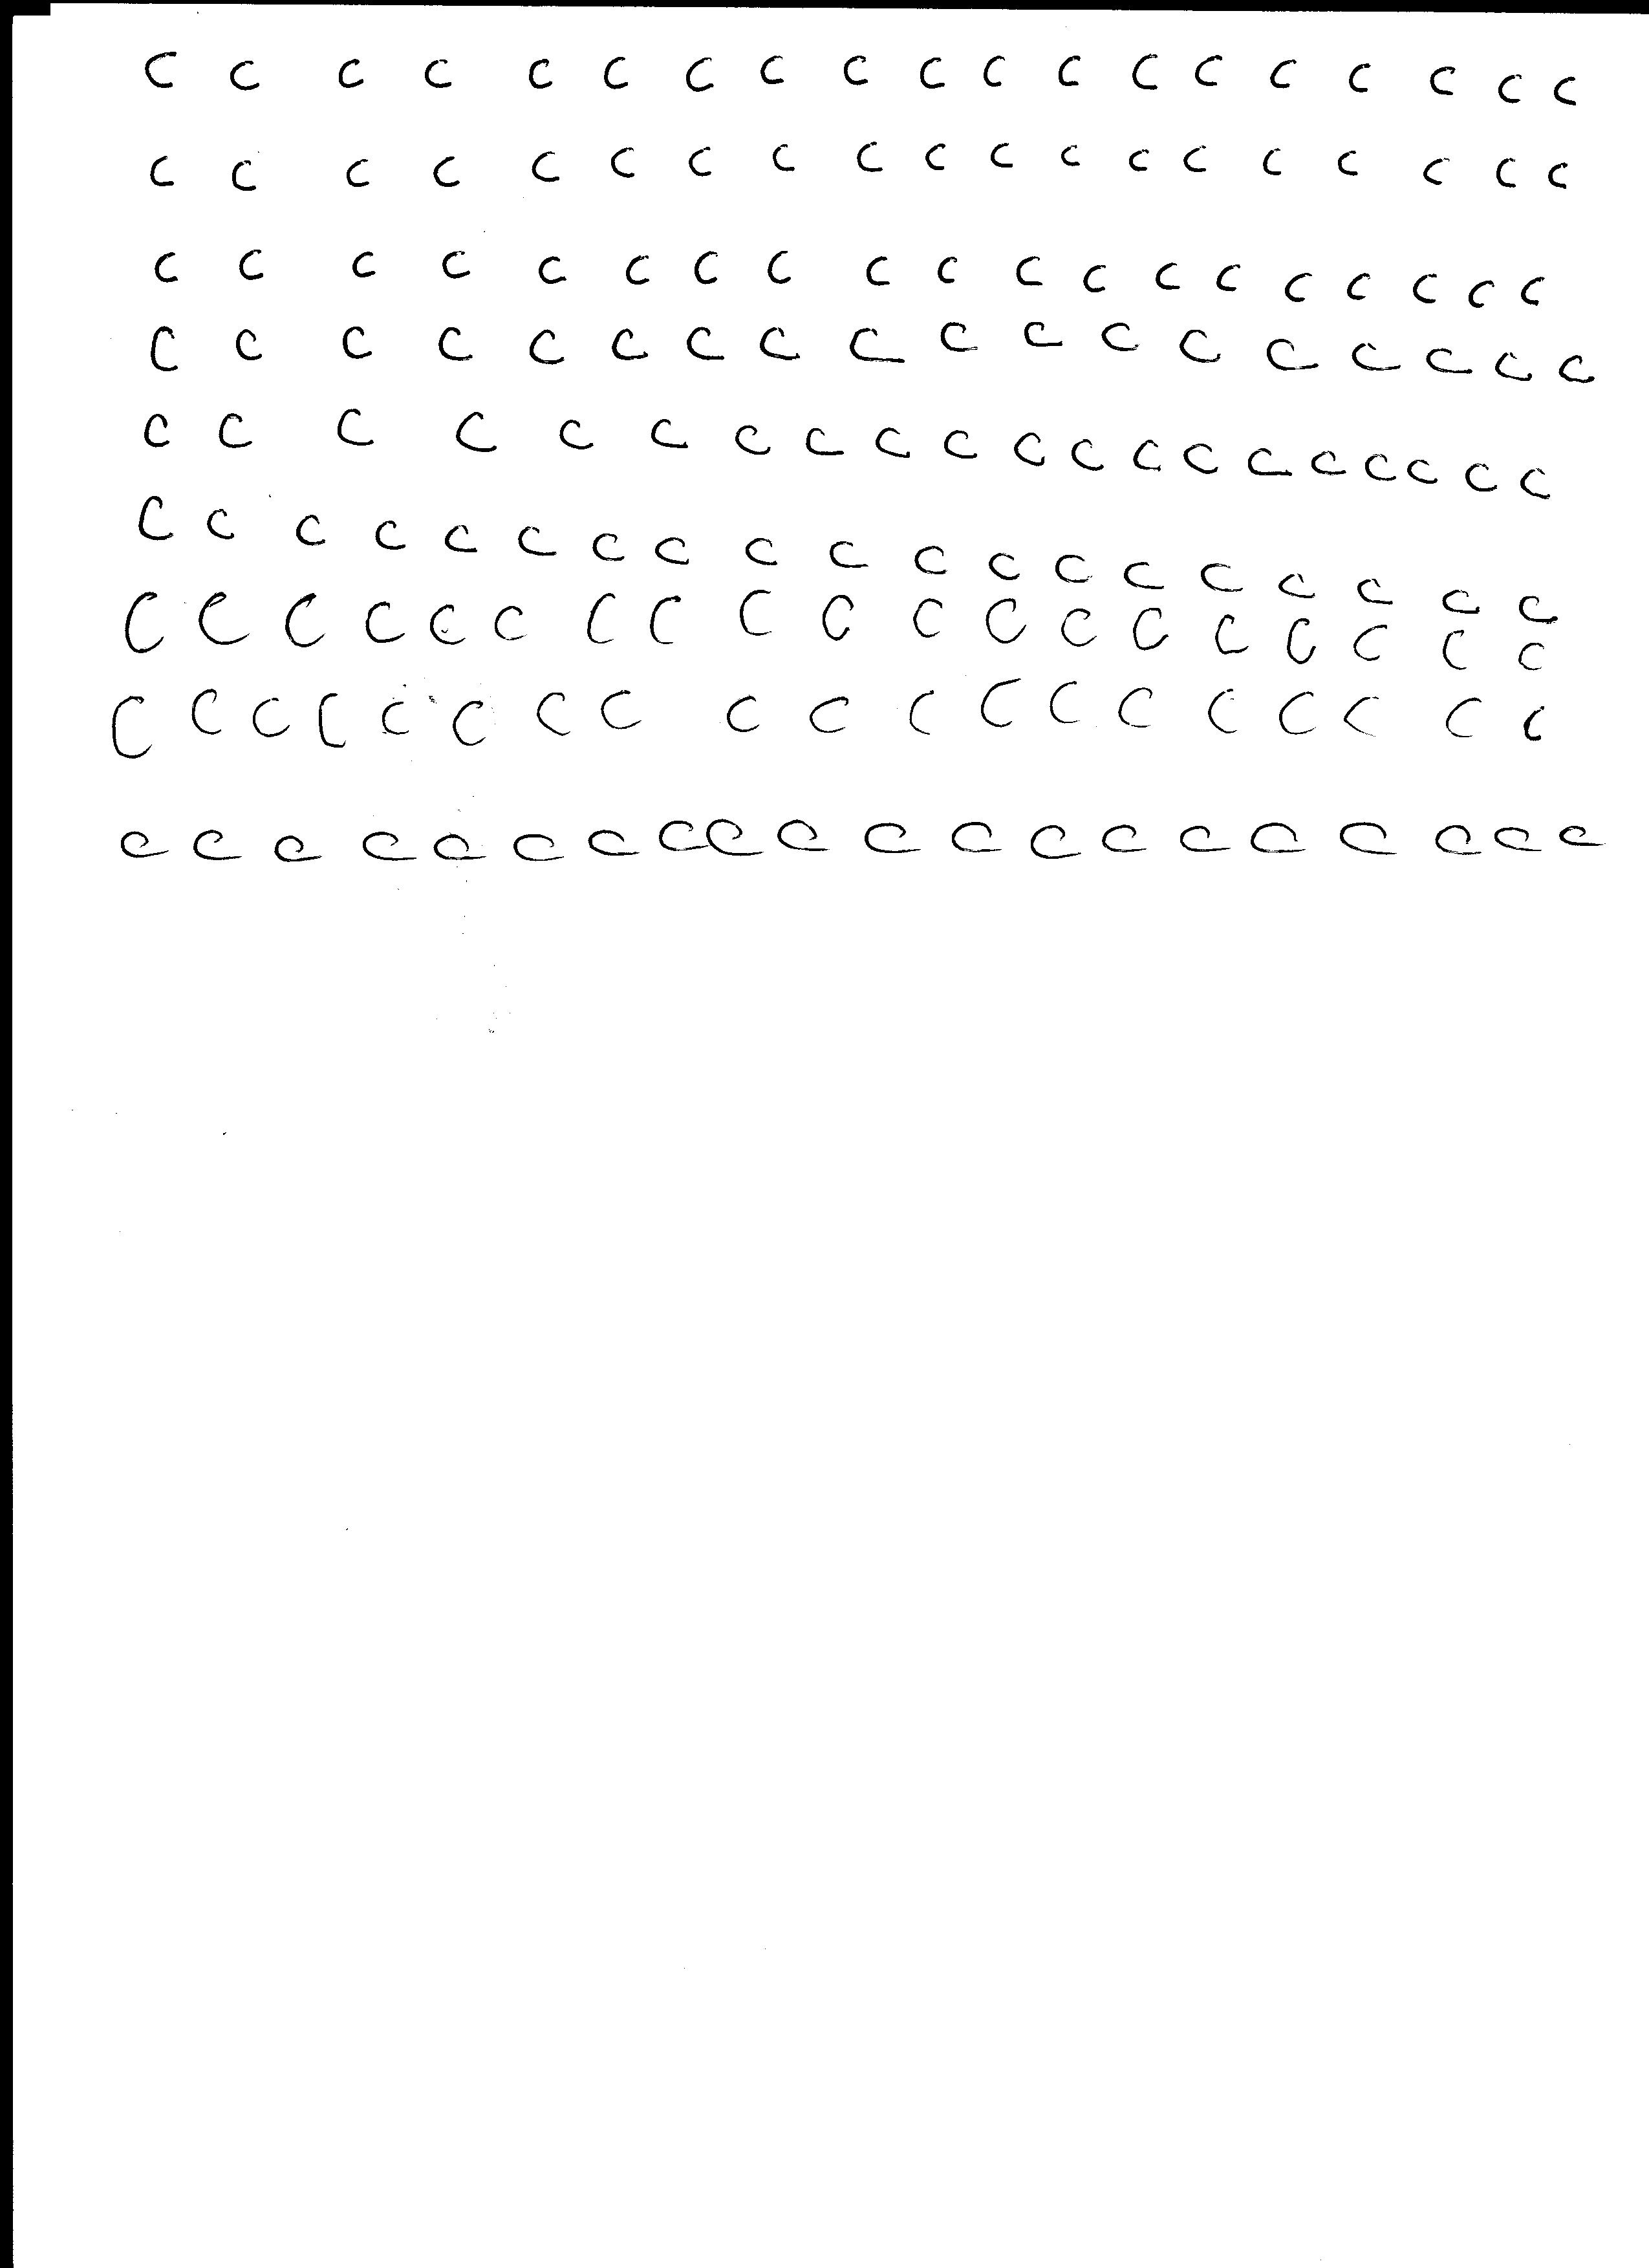 c c c c c c c c c c c c c c c c c c c
c c c c c c c c c c c c c c c c c c c
c c c c c c c c c c c c c c c c c c c
c c c c c c c c c c c c c c c c c c
c c c c c c c c c c c c c c c c c c c c
c c c c c c c c c c c c c c c c c c c
c c c c c c c c c c c c c c c c c c c
c c c c c c c c c c c c c c c c c c c
c c c c c c c c c c c c c c c c c c c c